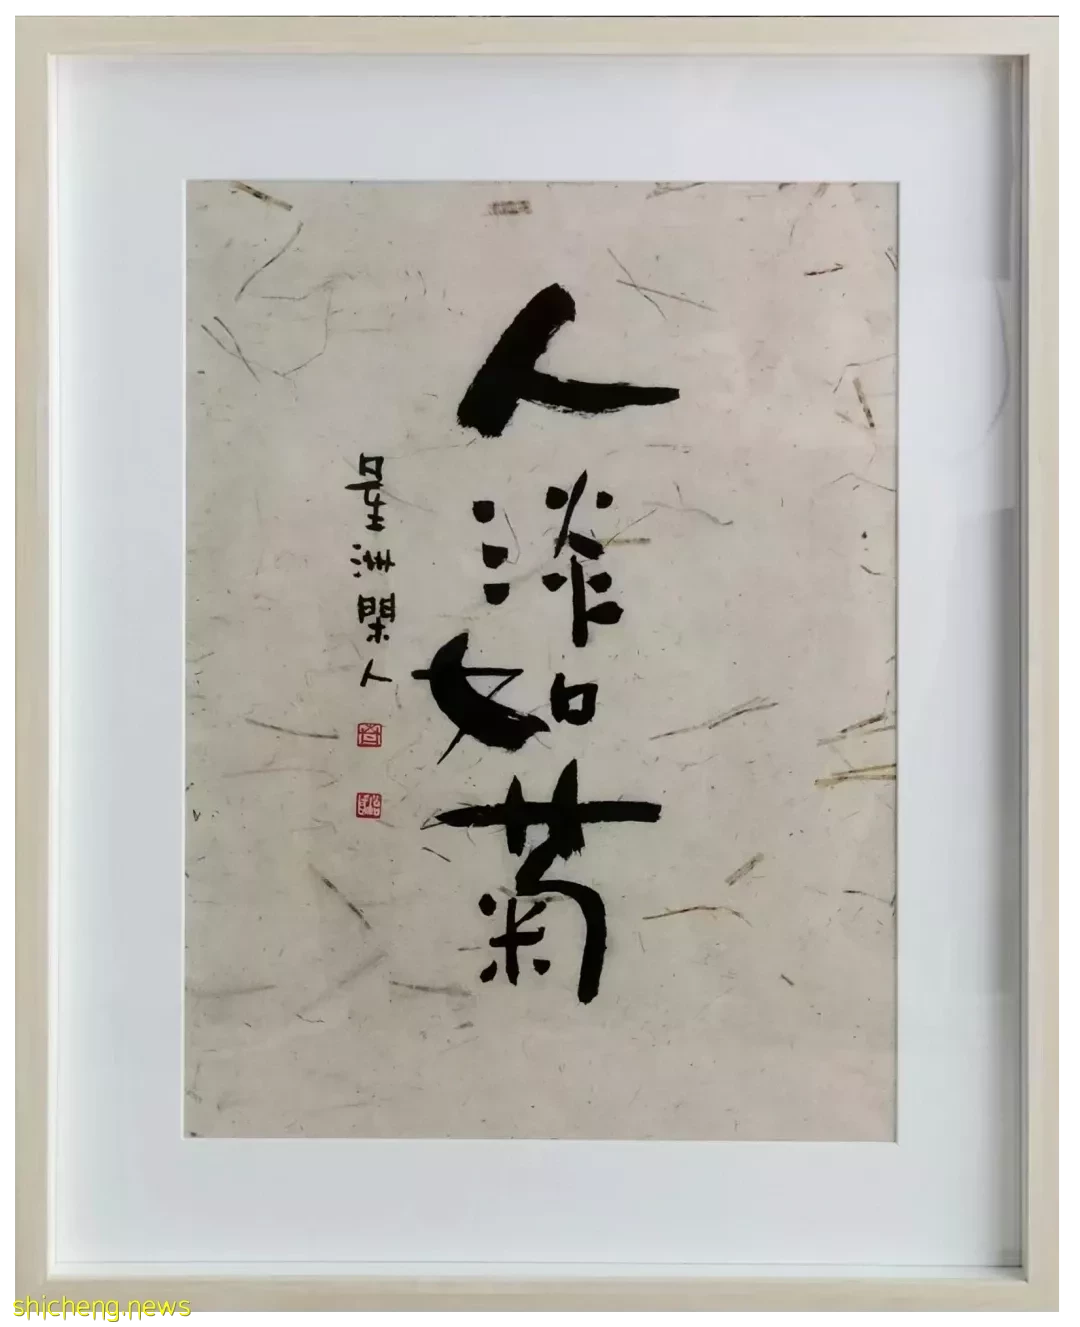 人淡如菊
星洲閑人
shicheng.news